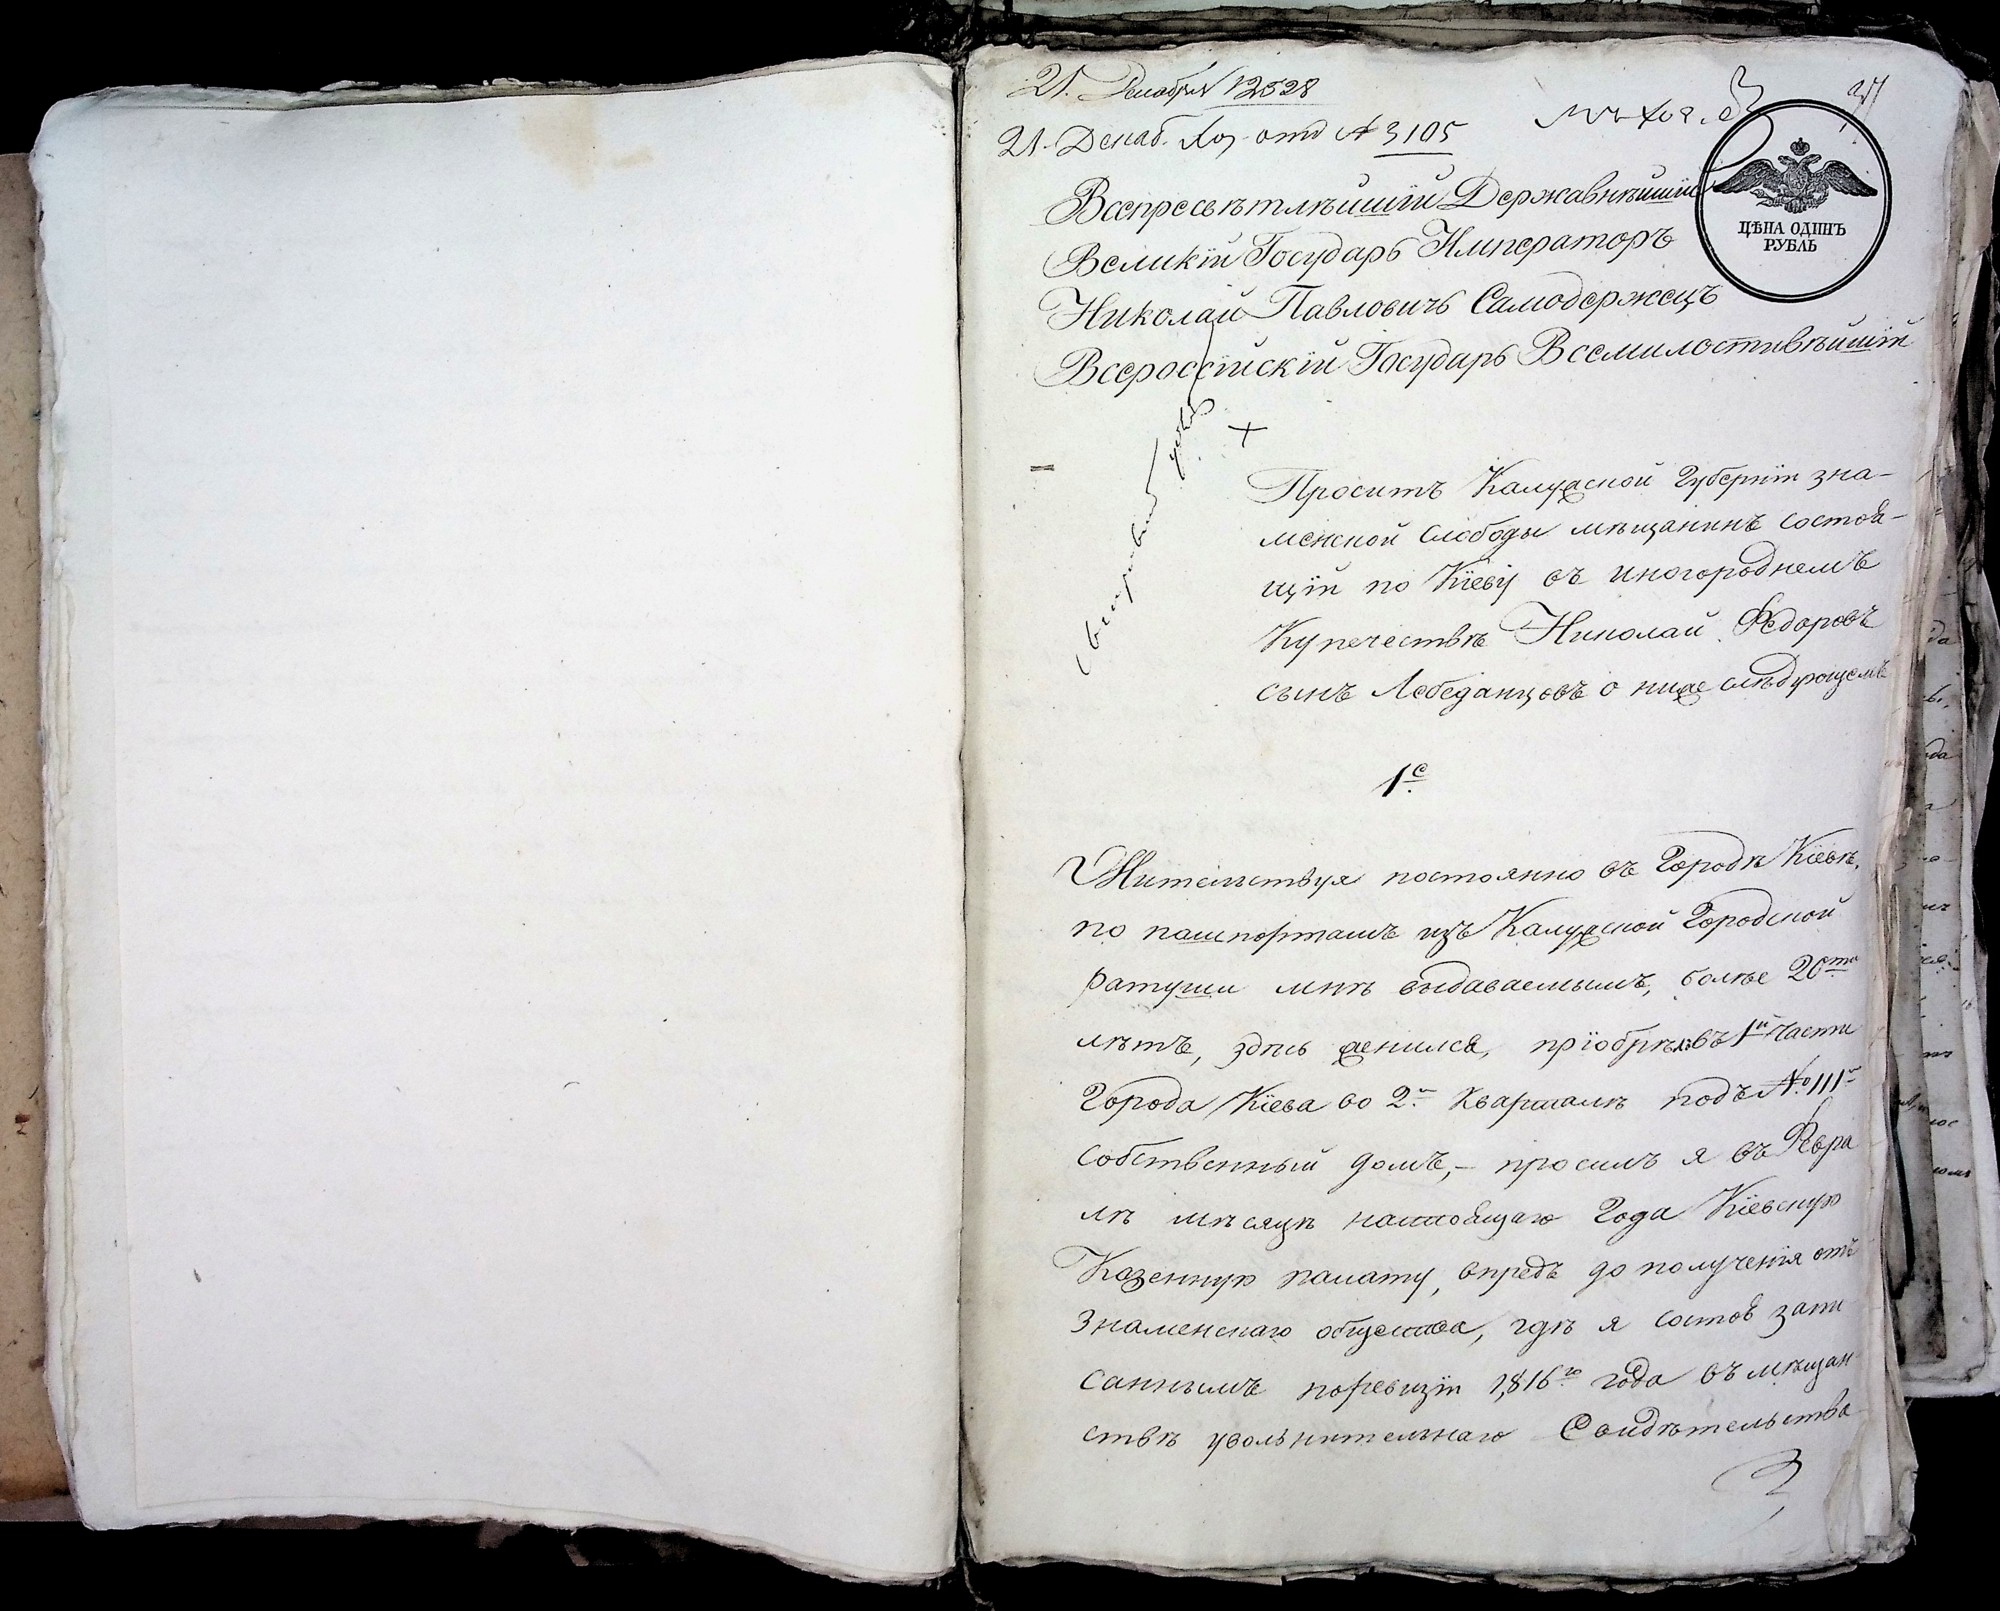 21. Декабря 12528
21. Декаб. Хоз. отд № 3105
ЦѢНА ОДИНЪ
РУБЛЬ
Всепресвѣтлѣйшій Державнѣйшій
Великій Государь Императоръ
Николай Павловичъ Самодержецъ
Всероссійскій Государь Всемилостивѣйшій
Проситъ Калужской Губерніи зна-
менской слободы мѣщанинъ состоя-
щій по Кіеву въ иногороднемъ
Купечествѣ Николай Федоровъ
сынъ Лебеданцовъ о ниже слѣдующемъ
1е
Жительствуя постоянно въ Городѣ Кіевѣ,
по пашпортамъ изъ Калужской Городской
ратуши мнѣ выдаваемымъ, болѣе 20ти
лѣтъ, здѣсь женился, пріобрѣлъ въ 1й части
Города Кіева во 2м Кварталѣ подъ № 111м
собственный домъ,- просилъ я въ Февра
лѣ мѣсяцѣ настоящаго Года Кіевскую
Казенную палату, впредь до полученія отъ
Знаменскаго общества, гдѣ я состоя запи
саннымъ по ревизіи 1816го года въ мѣщан
ствѣ увольнительнаго Свидѣтельства